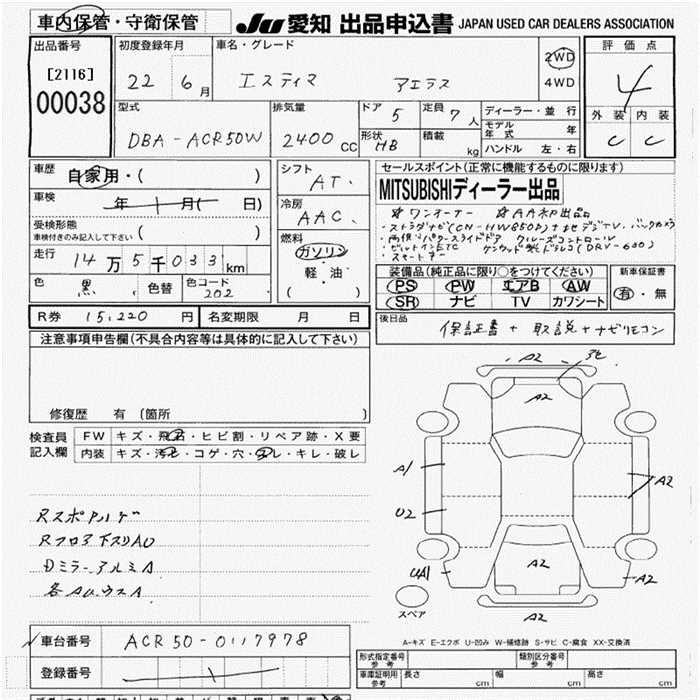 車内保管・守衛保管
JU 愛知 出品申込書 JAPAN USED CAR DEALERS ASSOCIATION
出品番号
[2116]
00038
初度登録年月
22 6月
車名・グレード
エスティマ アエラス
2WD
4WD
評価点
4
外装 内装
C C
型式
DBA-ACR50W
排気量
2400 CC
ドア 5
定員 7人
形状 HB
積載 kg
ディーラー・並行
モデル年式 年
ハンドル 左・右
車歴 自家用・( )
車検 年 月( 日)
受検形態
車検付きのみ記入して下さい ( )
走行 14万5千033km
色 黒
色替
色コード 202
シフト AT.
冷房 AAC.
燃料
ガソリン
軽・油
( )
セールスポイント(正常に機能するものに限ります)
MITSUBISHIディーラー出品
☆ワンオーナー ☆AA初出品
・ストラダナビ(CN-HW850D)+地デジTV.バックカメラ
・両側パワースライドドア クルーズコントロール
・ビルトインETC ケンウッド製ドラレコ(DRV-600)
・スマートキー
装備品(純正品に限り○をつけてください)
PS PW エアB AW
SR ナビ TV カワシート
新車保証書
有・無
R券 15,220円
名変期限 月 日
後日品 保証書+取説+ナビリモコン
注意事項申告欄(不具合内容等は具体的に記入して下さい)
修復歴 有(箇所
検査員記入欄
FW キズ・飛石・ヒビ割・リペア跡・X要
内装 キズ・汚レ・コゲ・穴・スレ・キレ・破レ
Rスポアルゲ
Rフロア下スリAU
DミラーアルミA
各AUウスA
A2
3ヒ
A2
A1
A2
U2
A2
UA1
A2
スペア
A2
A-キズ E-エクボ U-凹み W-補修跡 S-サビ C-腐食 XX-交換済
車台番号 ACR50-0117978
登録番号
形式指定番号 参考
類別区分番号 参考
車庫証明用 参考 長さ cm 幅 cm 高さ cm